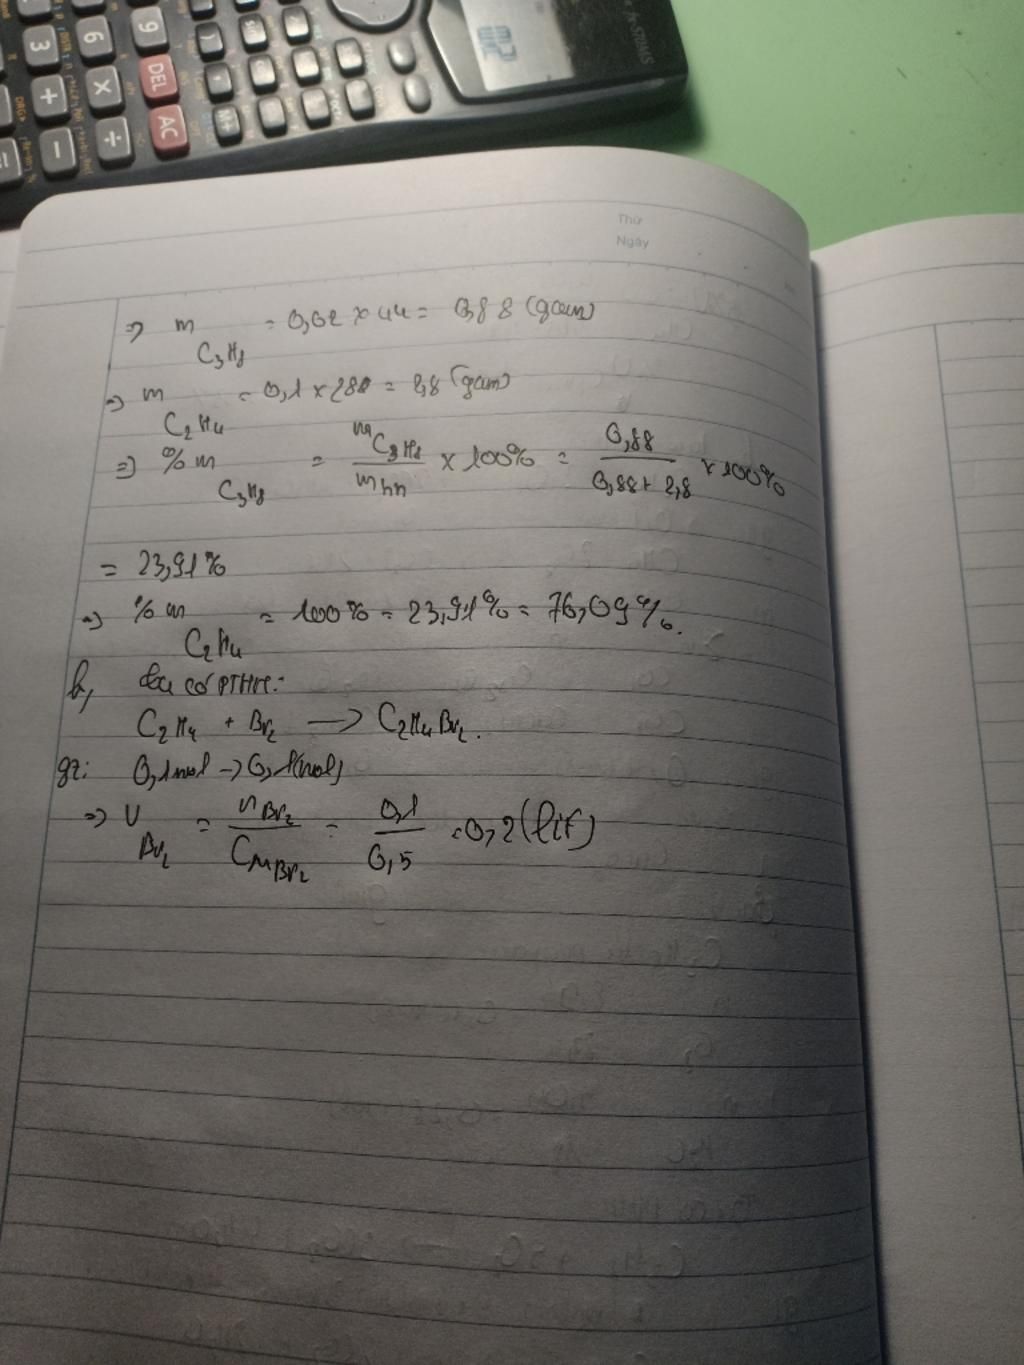 3
6
9
+
×
DEL
−
÷
AC
M+
Thứ
Ngày
=> m C3H8 = 0,02 x 44 = 0,88 (gam)
=> m C2H4 = 0,1 x 28 = 2,8 (gam)
=> %m C3H8 = mC3H8 / mhh x 100% = 0,88 / 0,88 + 2,8 x 100%
= 23,91%
=> %m C2H4 = 100% - 23,91% = 76,09%.
b, Ta có PTHH:
C2H4 + Br2 → C2H4Br2.
gt: 0,1mol → 0,1(mol)
=> V Br2 = nBr2 / CMBr2 = 0,1 / 0,5 = 0,2 (lít)